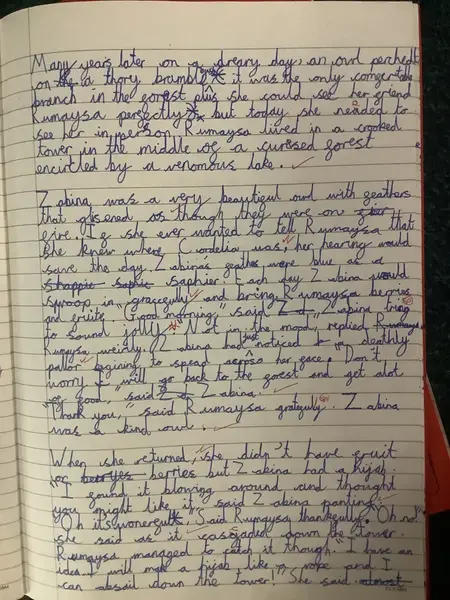 Many years later on a dreary day, an owl perched
on the a thory bramble it was the only comfertable
branch in the forest plus she could see her friend
Rumaysa perfectly but today she needed to
see her in person. Rumaysa lived in a crooked
tower in the middle of a cursed forest
encircled by a venomous lake.
Zabina was a very beautiful owl with feathers
that glisened as though they were on
fire. If she ever wanted to tell Rumaysa that
she knew where Cordelia was, her hearing would
save the day. Zabina's feathers were blue as a
saphier. Each day Zabina would
swoop in gracefully and bring Rumaysa berries
and friute. "Good morning," said Zabina tring
to sound jolly. Not in the mood, replied
Rumaysa weirdly. Zabina had just noticed a deathly
pallor begining to spread across her face. Don't
worry I will go back to the forest and get alot
of food, said Zabina.
"Thank you," said Rumaysa gratefully. Zabina
was a kind owl.
When she returned, she didn't have fruit
or berries but Zabina had a hijab.
"I found it blowing around and thought
you might like it", said Zabina panting.
"Oh its wonerful", Said Rumaysa thankfully. "Oh no!"
she said as it cascaded down the tower.
Rumaysa managed to catch it though. I have an
idea I will make a hijab like rope and I
can absail down the tower! She said